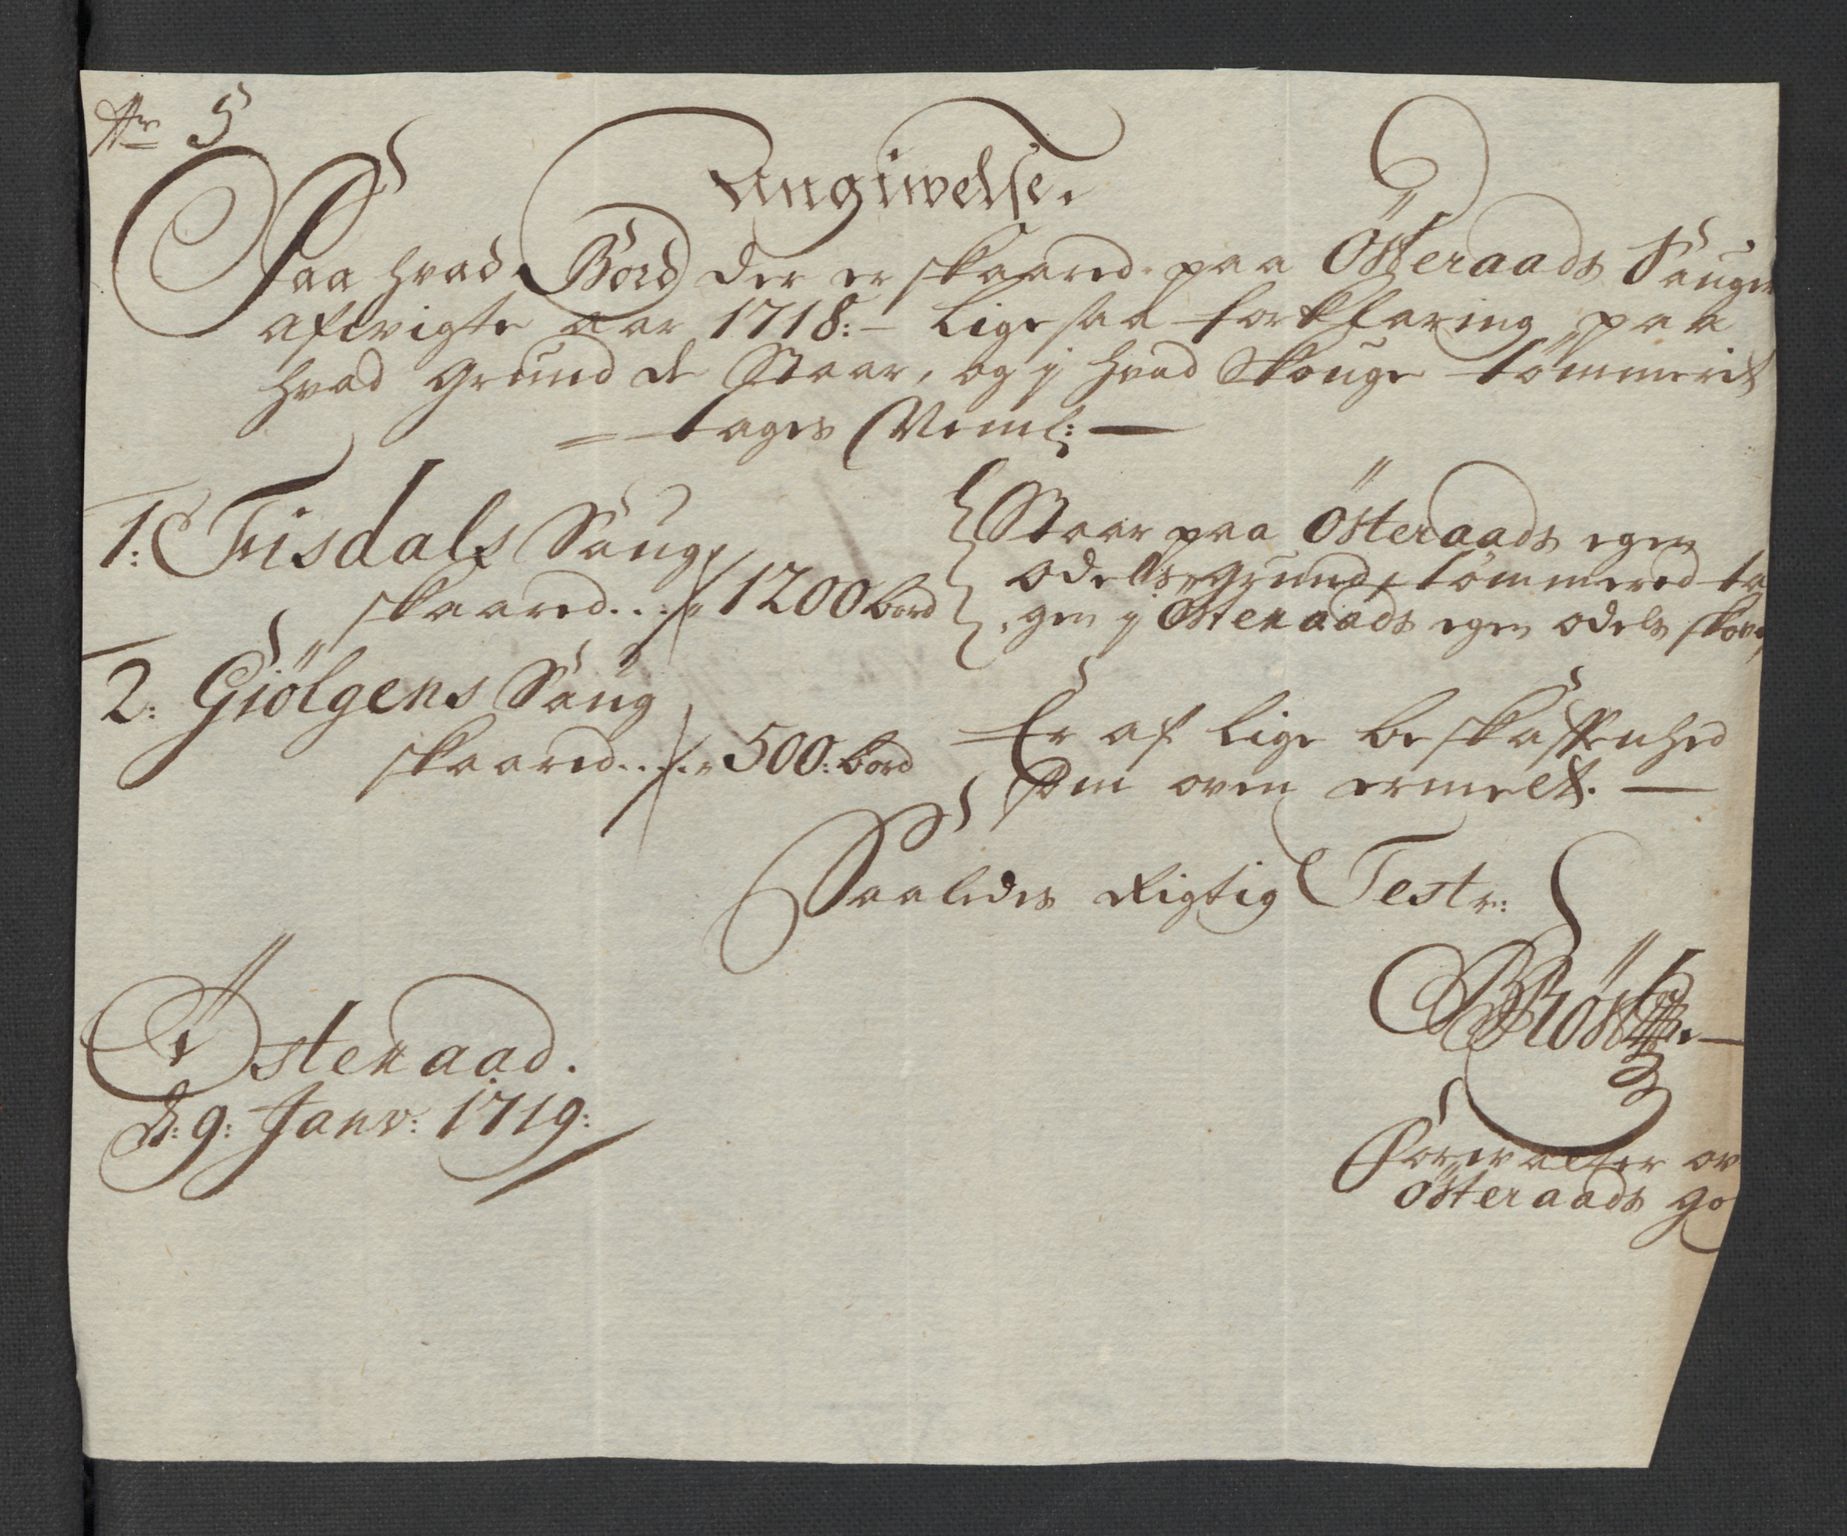 Nr 5
Angiwelse.
Paa hvad Bord der er skaared paa Österaads Sauger
afwigte aar 1718:- Lige saa forklaring paa
hvad Grund de Staar, og y hvad Skouge tømmerit
tages Neml:
1: Frisdals Saug
skaared 1200 bord
Staar paa Österaads egen
odels grund, tømmered ta
gen y Österaads egen odels skove,
2: Giölgens Saug
skaared 500: bord
Er af lige beskaffenhed
som oven ermelt.
Saaledes Rigtig Testr:
Österaad.
d: 9: Janv: 1719:
Forwalter ov
Österaads go